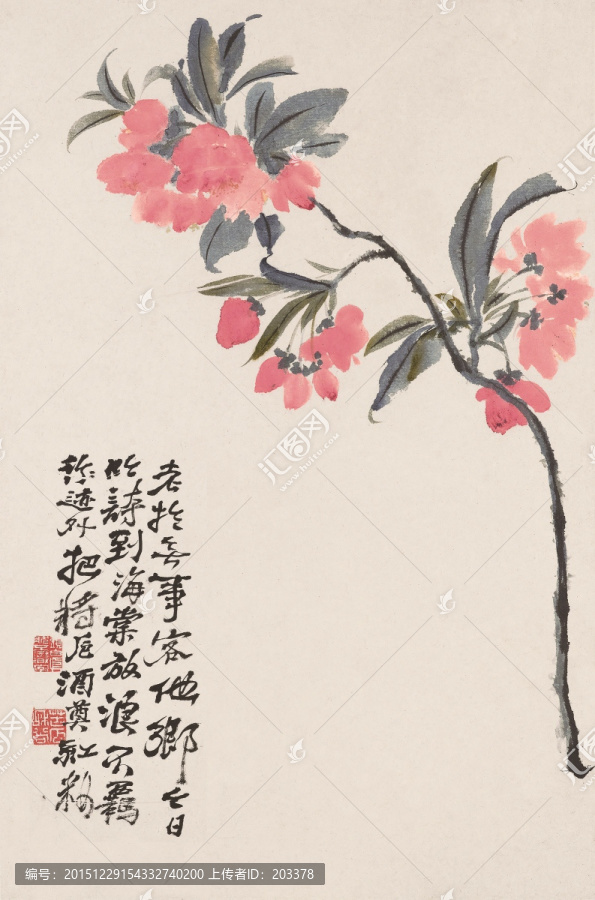 老於无事客他鄉今日
吟詩到海棠放浪不羈
形迹外把將卮酒奠紅粉
汇图网
编号：20151229154332740200 上传者ID：203378